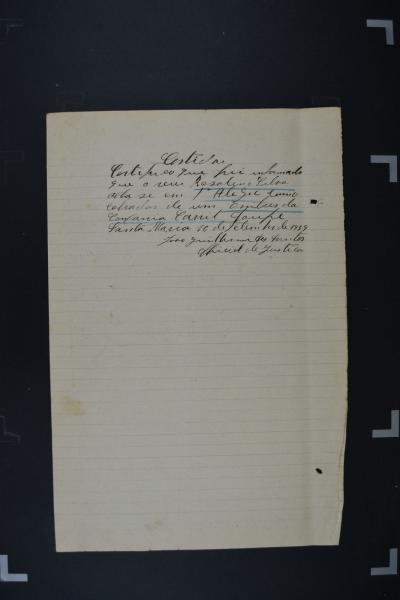 Certidão
Certifico que fui informado
que o reu Rosalino Silva
acha se em P Alegre como
cobrador de um Omibus da
Compania Carril
Santa Maria 10 de Setembro de 1939
João Guilherme dos Santos
Oficial de Justiça